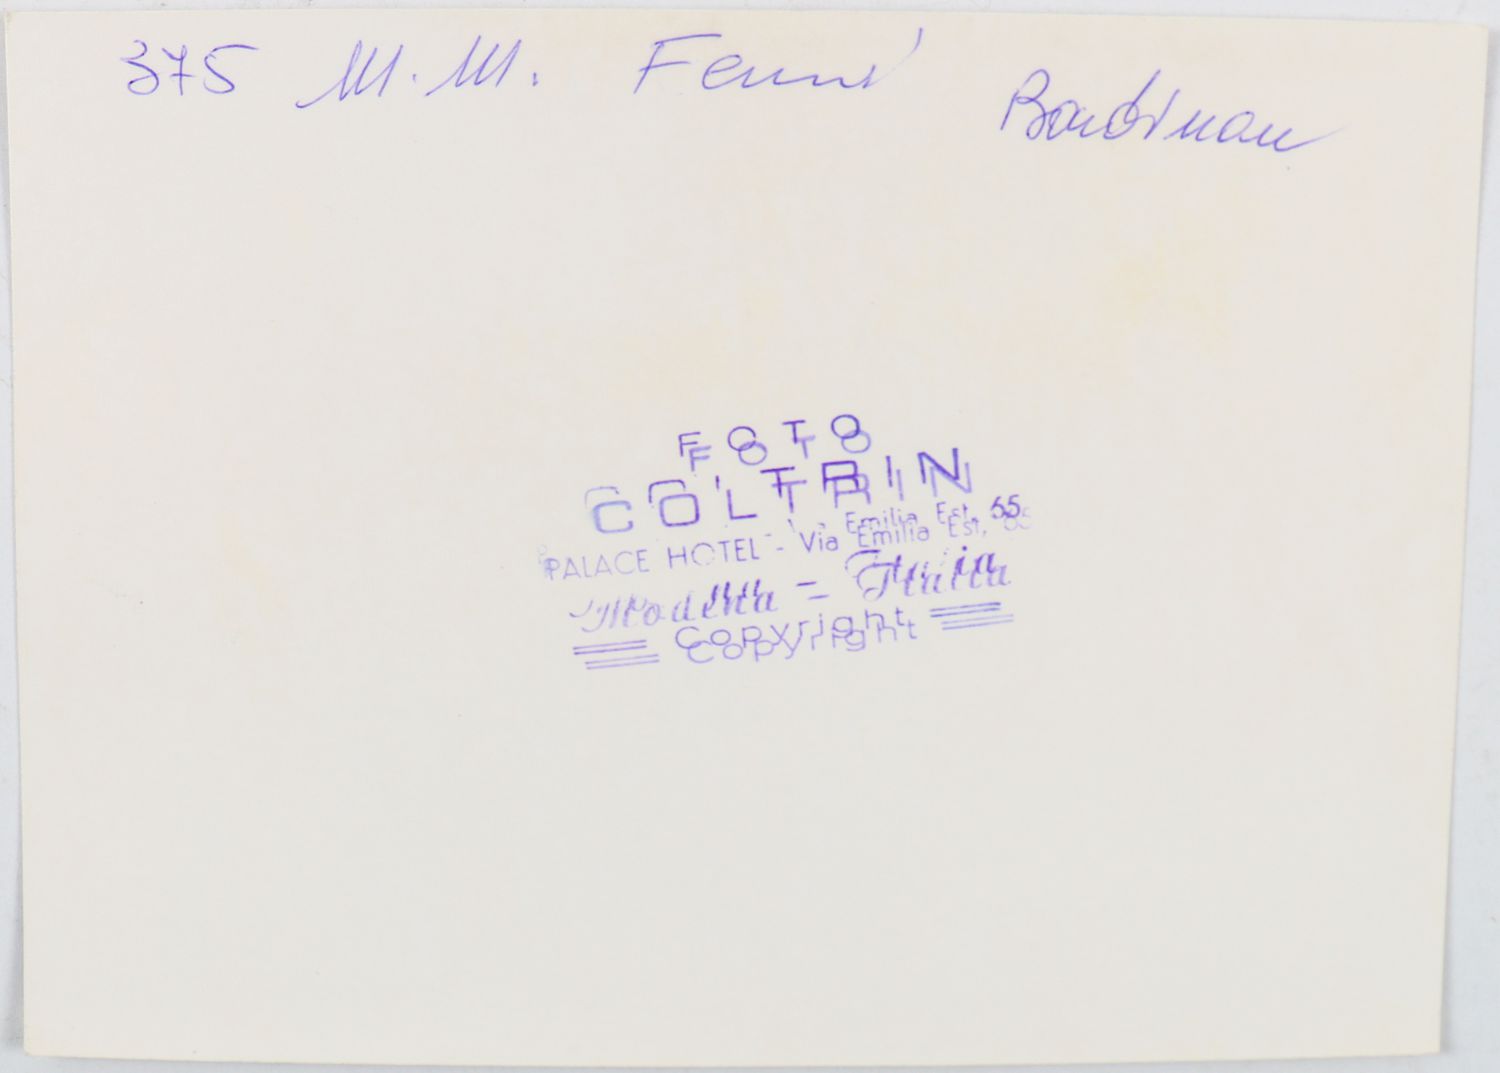 375 M.M. Ferrari
Bardinon
FOTO
COLTRIN
PALACE HOTEL - Via Emilia Est, 55
Modena = Italia
Copyright